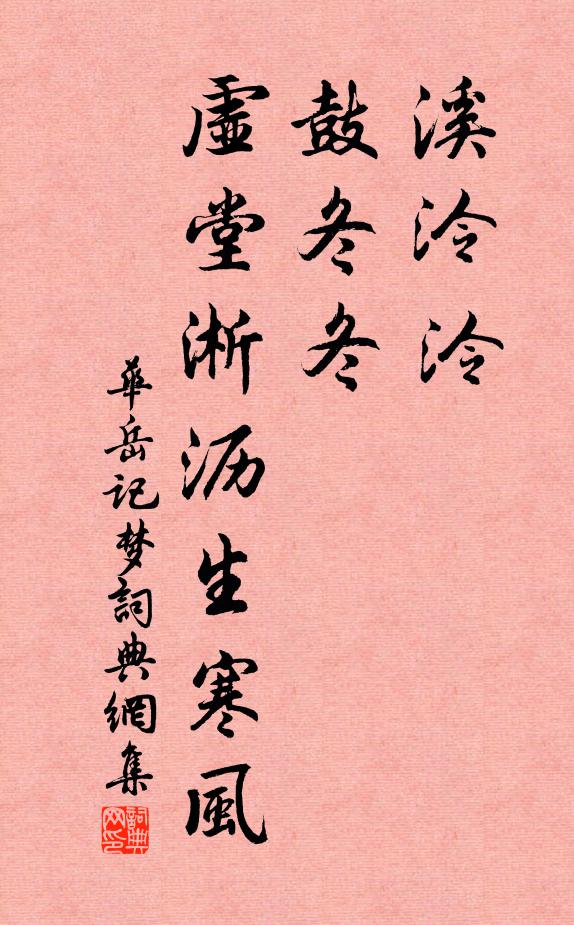 溪泠泠
鼓冬冬
虚堂淅沥生寒風
華岳记梦詞典網集
詞典网印